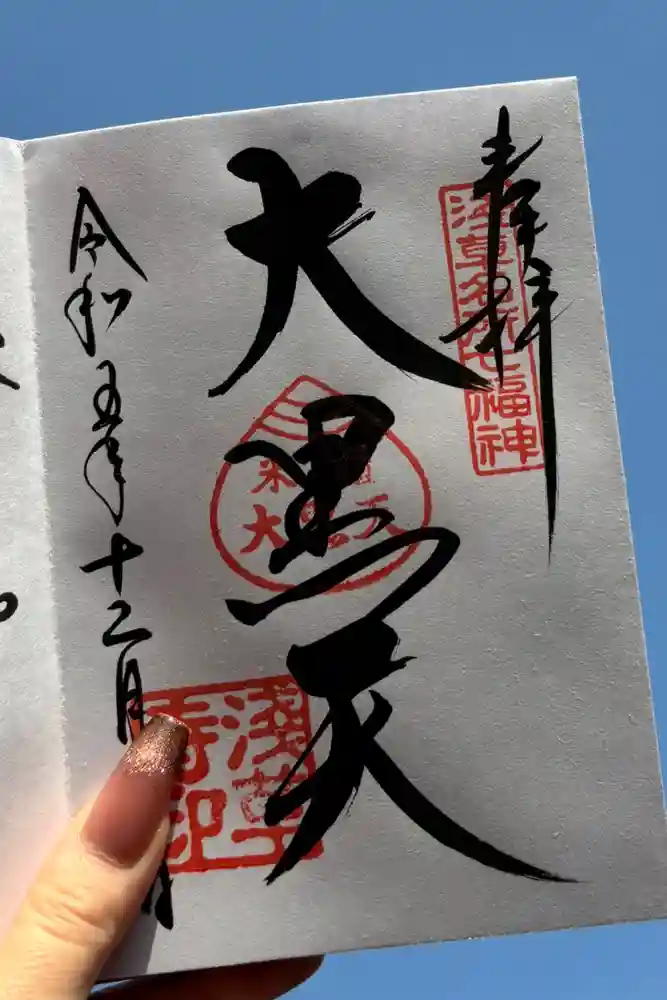 奉拝
浅草名所七福神
大黒天
米
大黒天
浅草
寺印
令和五年十二月